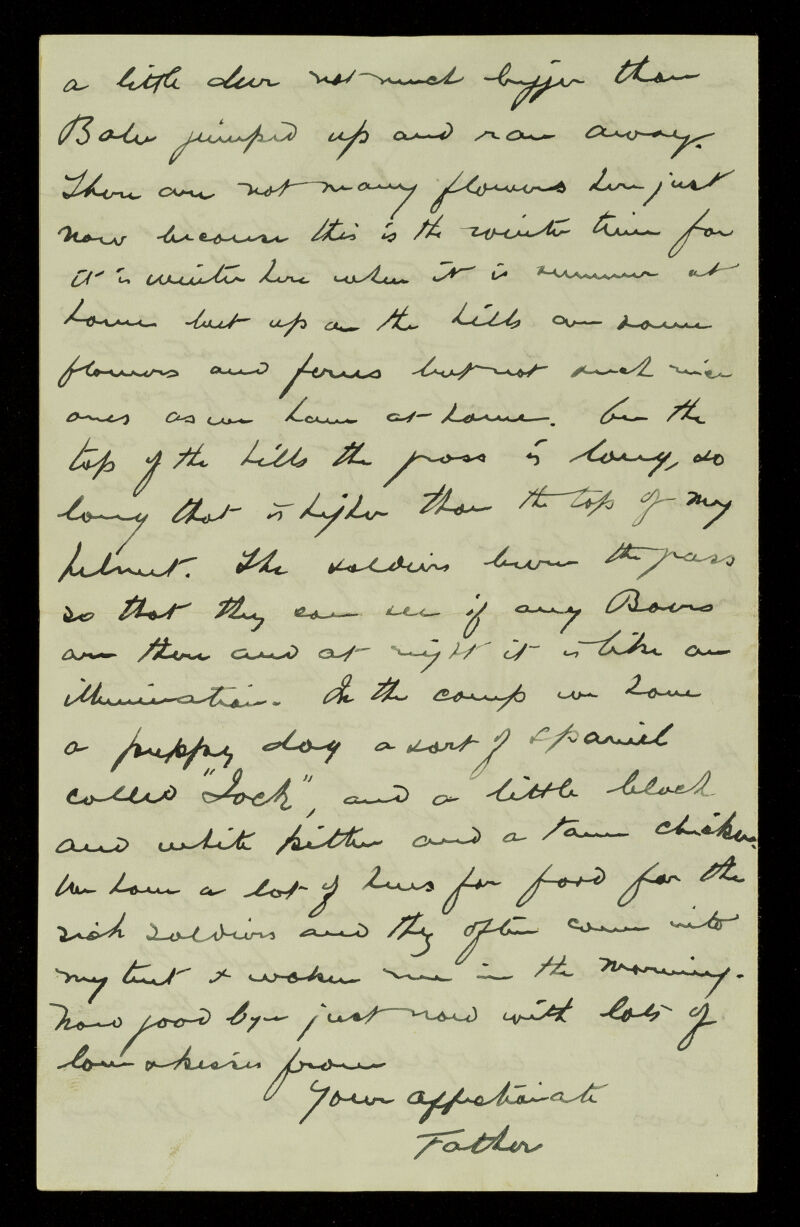 a little deer not much bigger than
Babe jumped up and ran away.
There are not many flowers here just
now because this is the winter time for
it is winter here when it is summer at
home but up on the hills are some
flowers and ferns but not such nice
ones as we have at home. On the
top of the hills the grass is long, so
long that is higher than the top of my
helmet. The soldiers burn the grass
so that they can see if any Boers
are there and at night it is like an
illumination. In the camp we have
a puppy dog a sort of spaniel
called "Jock", and a little black
and white kitten and a tame chicken.
We have a lot of hens for food for the
sick soldiers and they often come into
my tent & waken me in the morning.
Now good bye just now with lots of
love & kisses from
Your affectionate
Father